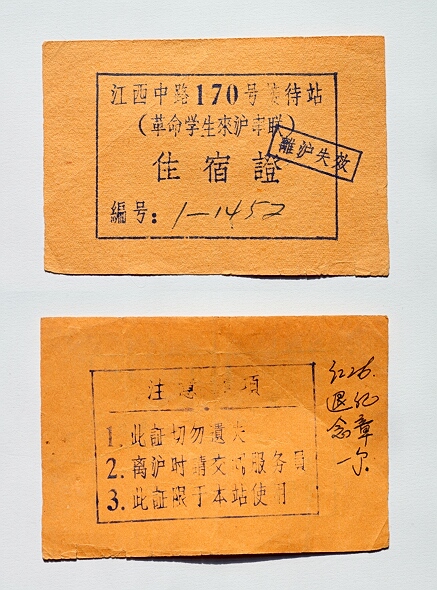 江西中路170号接待站
(革命学生來沪串联)
住宿證
離沪失效
編号：1-1452
注意事項
1. 此証切勿遺失
2. 离沪时請交还服务員
3. 此証限于本站使用
退纪
念章